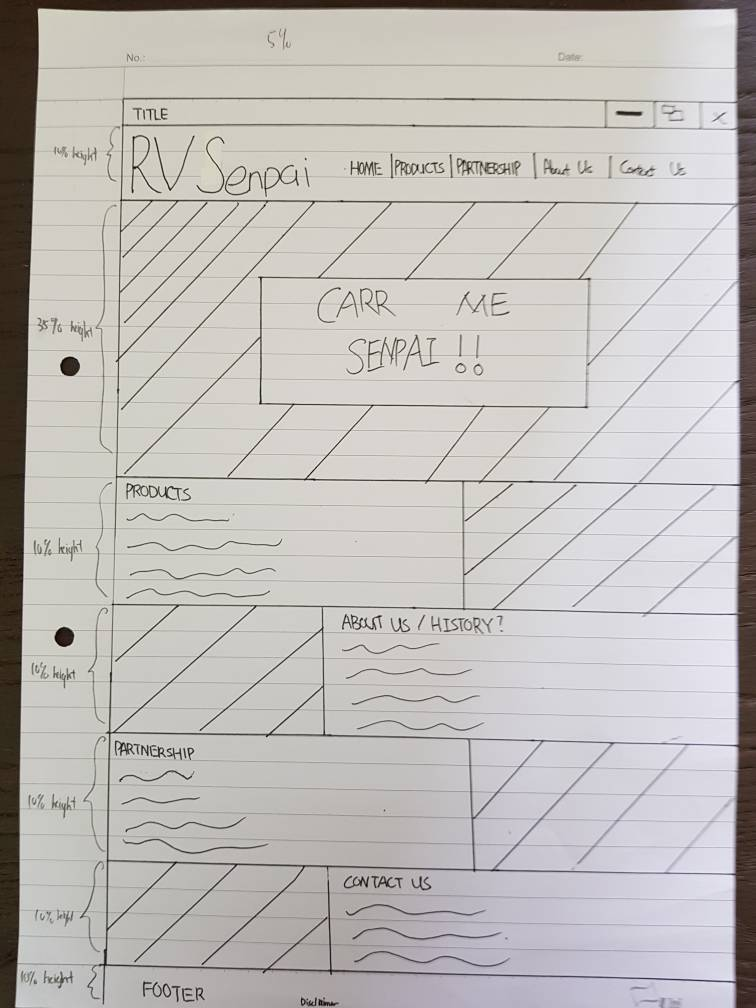 5%
No.:
Date:
TITLE
10% height
RV Senpai
HOME | PRODUCTS | PARTNERSHIP | About Us | Contact Us
35% height
CARR ME
SENPAI !!
PRODUCTS
10% height
ABOUT US / HISTORY?
10% height
PARTNERSHIP
10% height
CONTACT US
10% height
10% height
FOOTER
Disclaimer